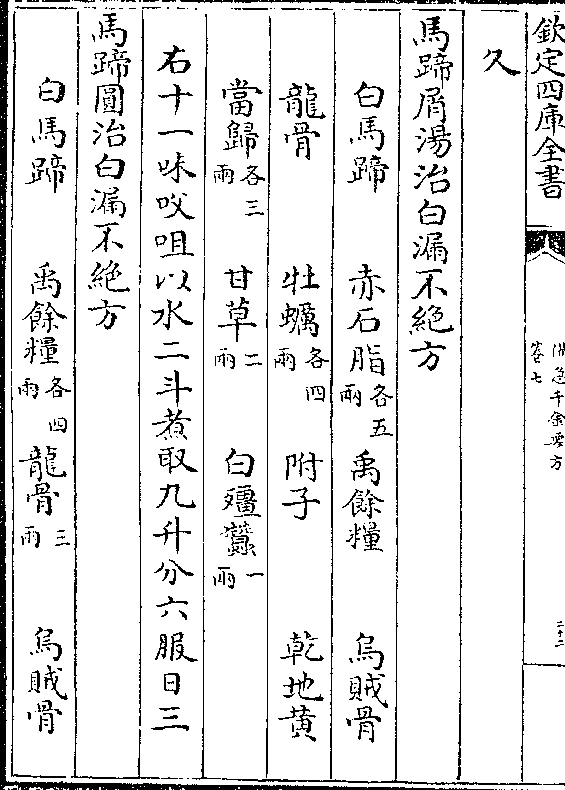 欽定四庫全書
備急千金要方
卷七
二十二
久
馬蹄屑湯治白漏不絶方
白馬蹄 赤石脂各五兩 禹餘糧 烏賊骨
龍骨 牡蠣各四兩 附子 乾地黄
當歸各三兩 甘草二兩 白殭蠶一兩
右十一味㕮咀以水二斗煮取九升分六服日三
馬蹄圓治白漏不絶方
白馬蹄 禹餘糧各四兩 龍骨三兩 烏賊骨